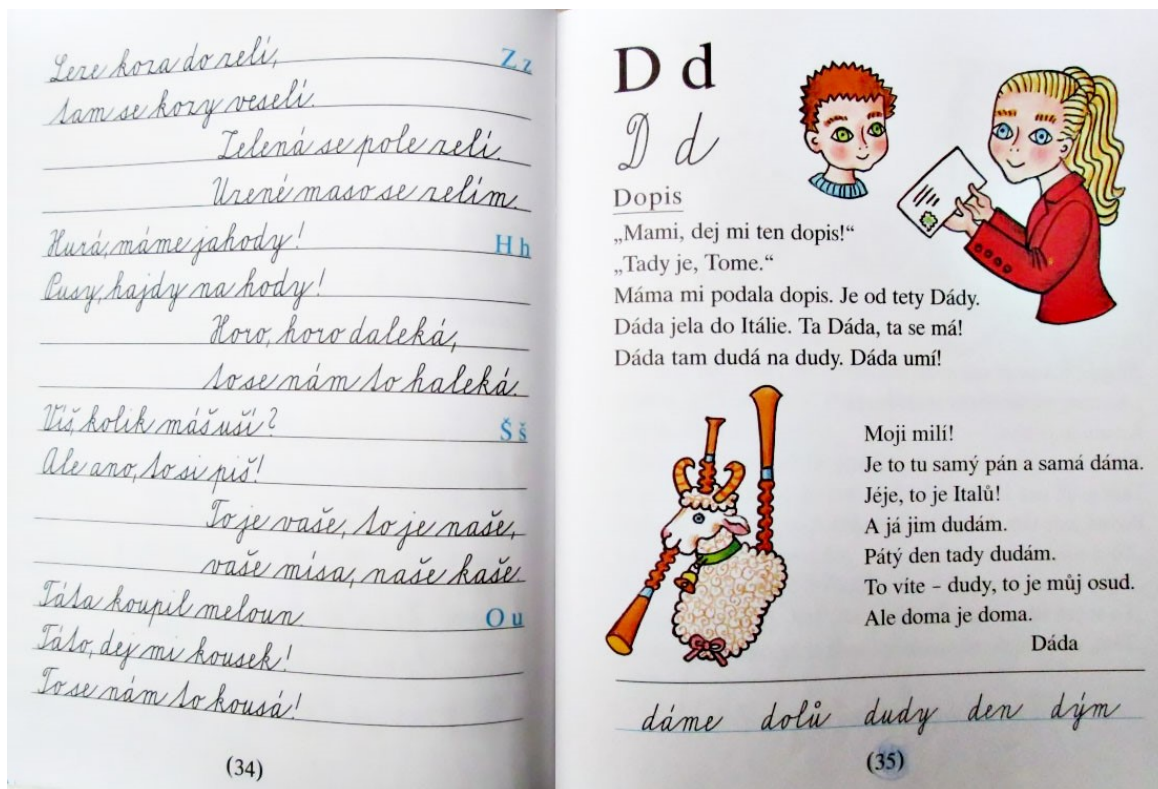 Leze koza do zelí,
Z z
tam se kozy veselí.
Zelená se pole zelí.
Uzené maso se zelím.
Hurá, máme jahody!
H h
Pusy, hajdy na hody!
Horo, horo daleká,
to se nám to haleká.
Víš, kolik máš uší?
Š š
Ale ano, to si piš!
To je vaše, to je naše,
vaše mísa, naše kaše.
Táta koupil meloun.
O u
Táto, dej mi kousek!
To se nám to kousá!
(34)
D d
D d
Dopis
„Mami, dej mi ten dopis!“
„Tady je, Tome.“
Máma mi podala dopis. Je od tety Dády.
Dáda jela do Itálie. Ta Dáda, ta se má!
Dáda tam dudá na dudy. Dáda umí!
Moji milí!
Je to tu samý pán a samá dáma.
Jéje, to je Italů!
A já jim dudám.
Pátý den tady dudám.
To víte – dudy, to je můj osud.
Ale doma je doma.
Dáda
dáme dolů dudy den dým
(35)